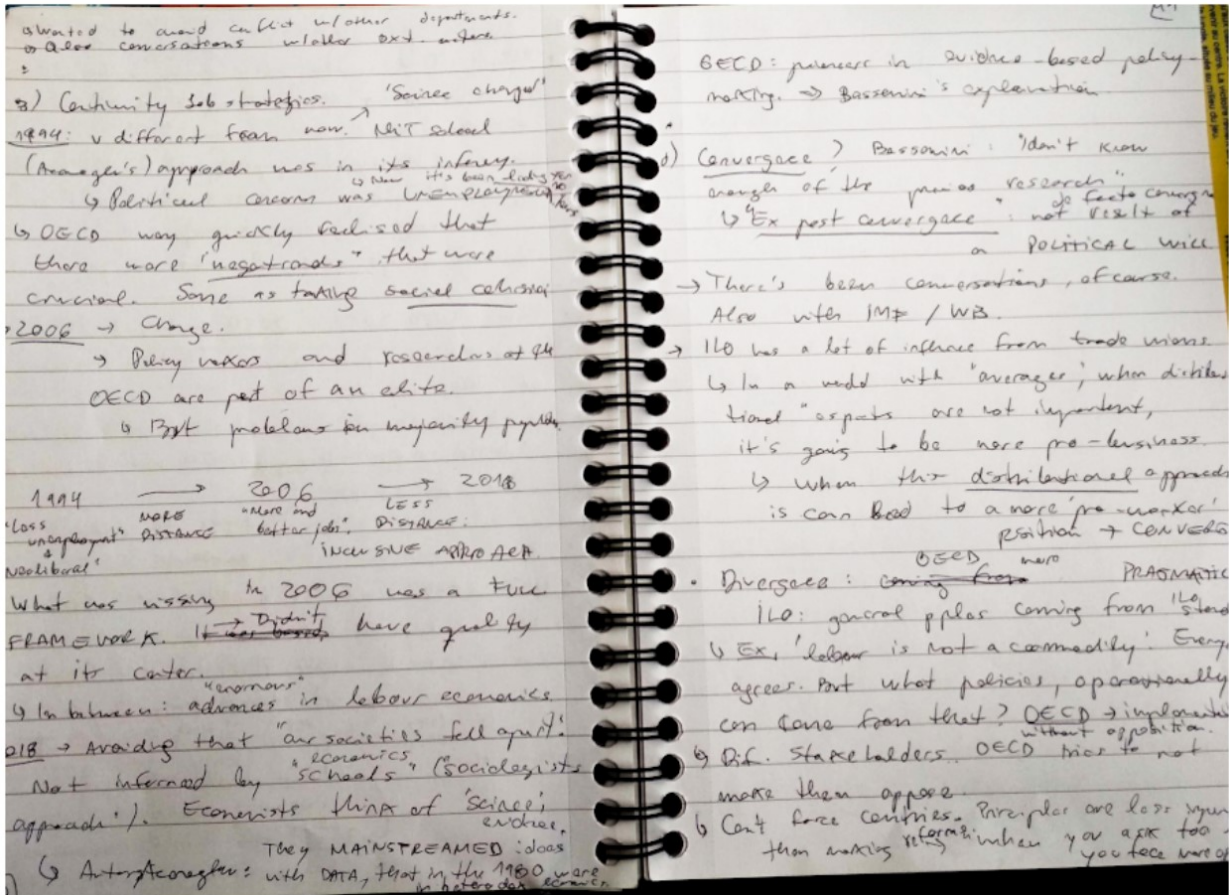 ↳ Wanted to avoid conflict w/other departments.
↳ Also conversations w/other ext.
3) Continuity Job strategies. 'Science changed'
1994: v different from now. MIT school
(Acemoglu's) approach was in its infancy.
↳ Now it's been
↳ Political concern was UNEMPLOYMENT
↳ OECD very quickly realised that
there were "megatrends" that were
crucial. Same as taking social cohesion
2006 → Change.
→ Policy makers and researchers at the
OECD are part of an elite.
↳ But problems in majority
1994 → 2006 → 2018
"Less unemployment" MORE DISTANCE "More and better jobs". LESS DISTANCE:
'Neoliberal' INCLUSIVE APPROACH.
What was missing in 2006 was a FULL
FRAMEWORK. It was based → Didn't have quality
at its center.
↳ In between: "enormous" advances in labour economics
018 → Avoiding that "our societies fell apart".
Not informed by economics "schools" (sociologists
approach'). Economists think of 'science',
evidence.
They MAINSTREAMED ideas
↳ Autor, Acemoglu: with DATA, that in the 1980 were
in heterodox economics.
OECD: pioneers in evidence-based policy-
making. → Bassanini's explanation.
d) Convergence > Bassanini: "I don't know
enough of the previous research"
↳ "Ex post convergence": not result of
de facto
a POLITICAL WILL
→ There's been conversations, of course.
Also with IMF / WB.
→ ILO has a lot of influence from trade unions
↳ In a world with 'averages', when distribu
tional "aspects are not important,
it's going to be more pro-business.
↳ When this distributional approach
is can lead to a more 'pro-worker'
position → CONVERG
• Divergence: coming from OECD more PRAGMATIC
ILO: general pples coming from ILO
↳ Ex, 'labour is not a commodity'. Every
agrees. But what policies, operationally
can come from that? OECD → implementa
without opposition.
↳ Dif. Stakeholders. OECD tries to not
make them oppose.
↳ Can't force countries. Principles are less
than making reforms: when you ask too
you face more